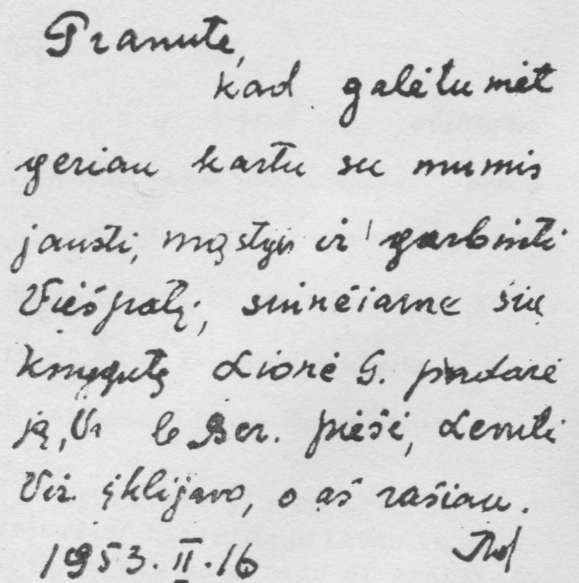 Pranute,
kad galėtumėt
geriau kartu su mumis
jausti, mąstyti ir garbinti
Viešpatį, siunčiame šią
knygutę Lionė G. padarė
ją, Le Ber. piešė, Levutė
Vir. įklijavo, o aš rašiau.
1953.II.16